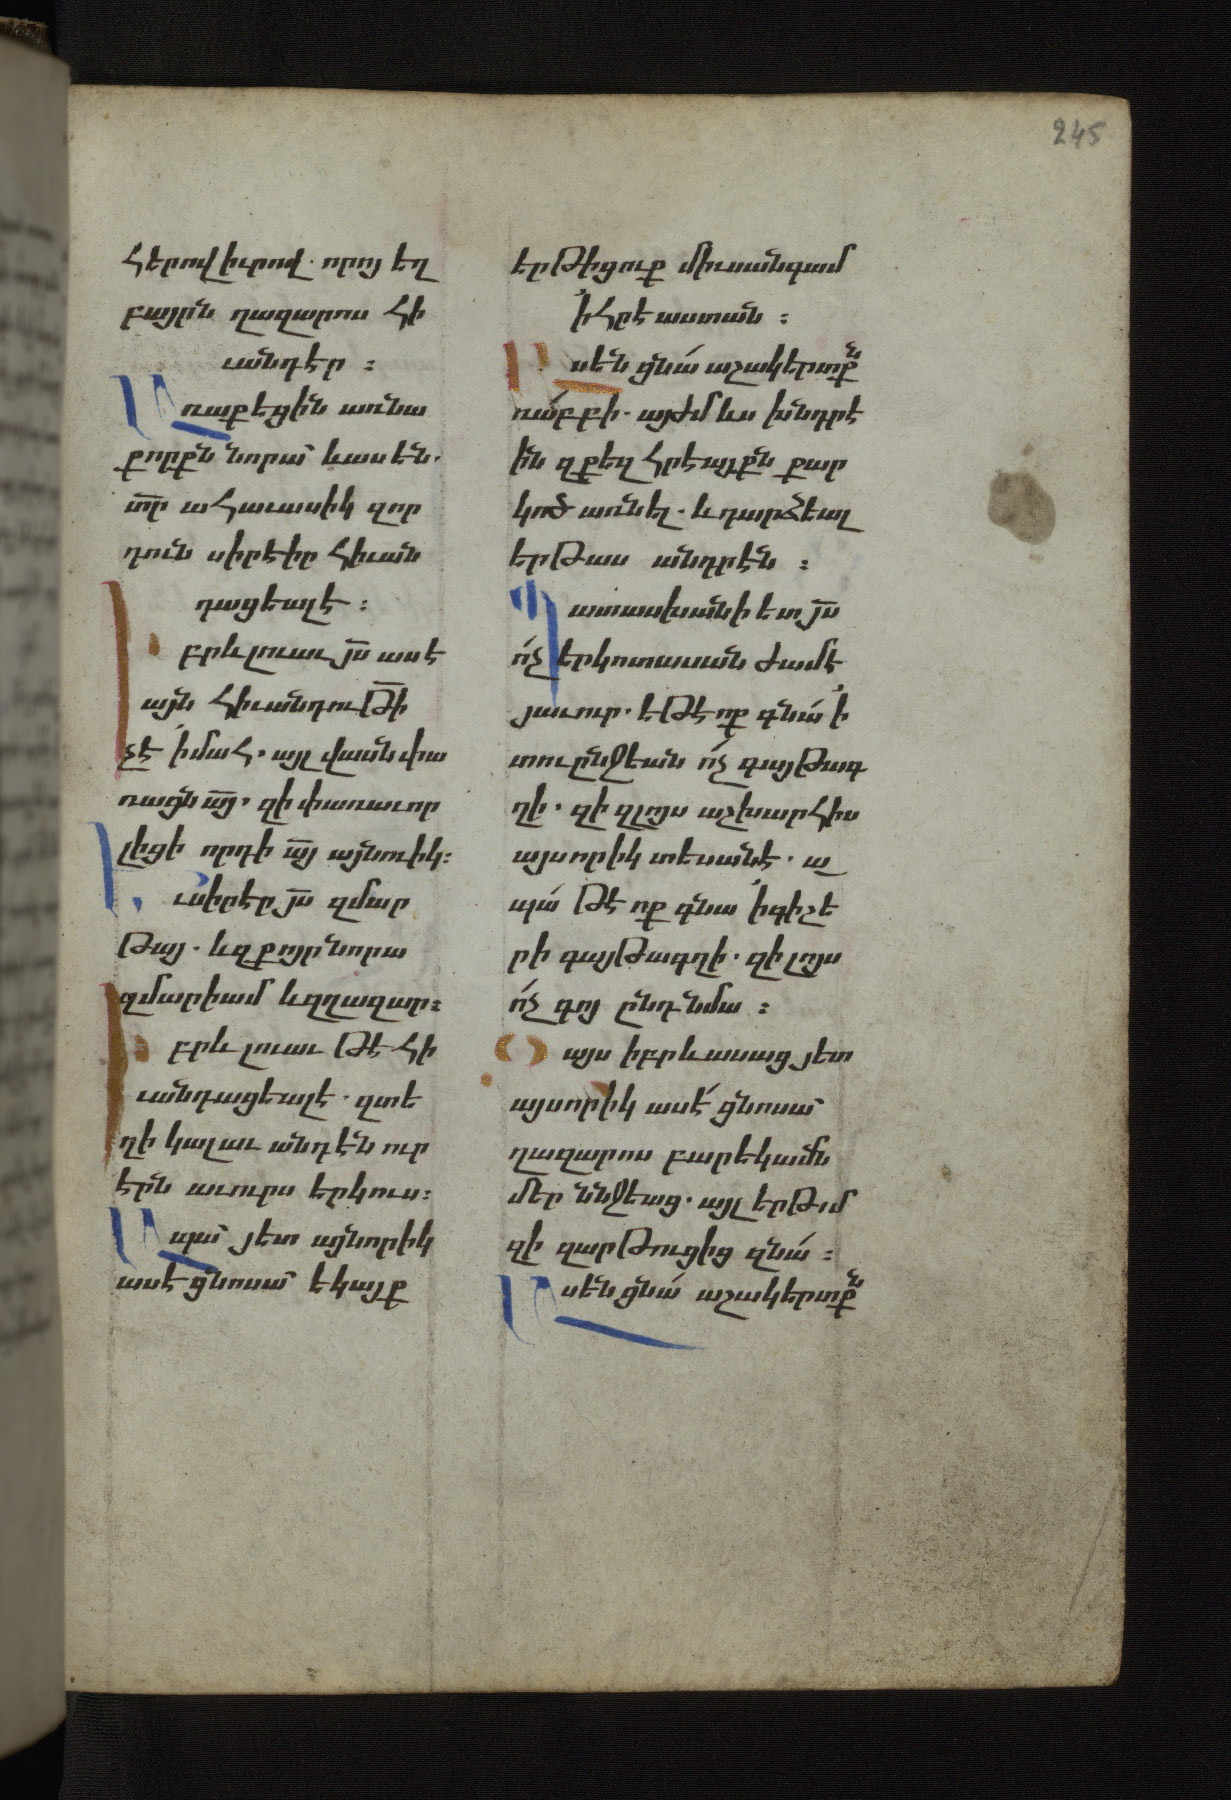 245
հերովիւրով. որոյ եղ
բայրն ղազարոս հի
ւանդէր ։
Առաքեցին առնա
քորքն նորա՝ ևասեն.
տր̅ ահաւասիկ զոր
դուն սիրէիր հիւան
դացեալէ ։
Իբրևլուաւ յս̅ ասէ
այն հիւանդութի̅
չէ՛ իմահ. այլ վասնփա
ռացնա̅յ. զի փառաւոր
լիցի որդի ա̅յ այնուիկ։
Եւսիրէր յս̅ զմար
թայ. ևզքոյրնորա
զմարիամ ևզղազար։
Իբրև լուաւ թէ հի
ւանդացեալէ. զտե
ղի կալաւ անդէն ուր
էրն աւուրս երկուս։
Ապա՝ յետ այնորիկ
ասէ ցնոսա՝ եկայք
երթիցուք միւսանգամ
՛իհրէաստան ։
Ասեն ցնա՛ աշակերտքն
ռա՛բբի. այժմ ևս խնդրէ
ին զքեզ հրէայքն քար
կոծ առնել. ևդարձեալ
երթաս անդրէն ։
Պատասխանի ետ յս̅
ո՛չ երկոտասան ժամէ
յաւուր. եթէ ոք գնա՛ ՛ի
տուընջեան ո՛չ գայթագ
ղի. զի զլոյս աշխարհիս
այսորիկ տեսանէ. ա
պա՛ թէ ոք գնա ՛իգիշե
րի գայթագղի. զի լոյս
ո՛չ գոյ ընդնմա ։
Զայս իբրևասաց յետ
այսորիկ ասէ՛ ցնոսա՝
ղազարոս բարեկամն
մեր ննջեաց. այլ երթամ
զի զարթուցից զնա՛ ։
Ասեն ցնա՛ աշակերտքն